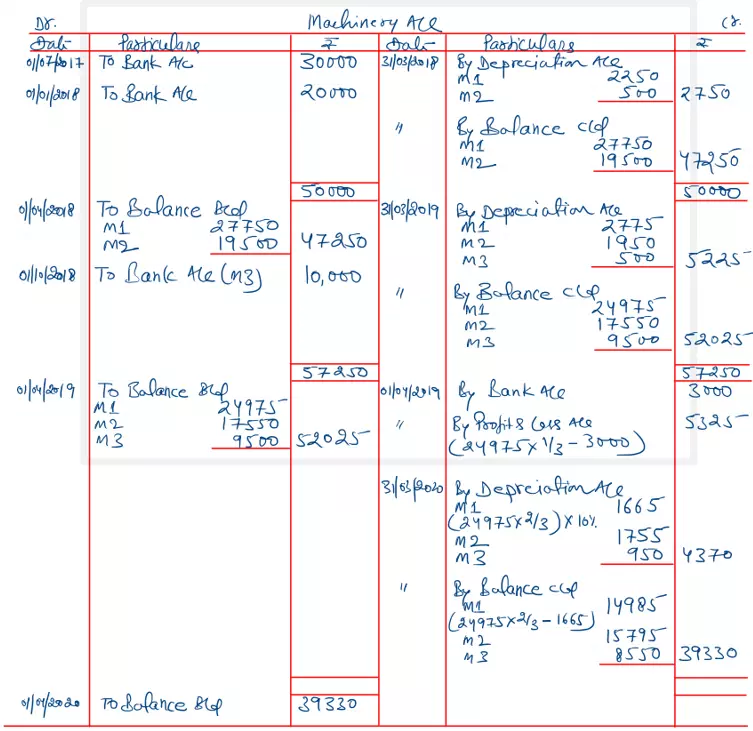 Dr. Machinery A/c Cr.
Date Particulars ₹ Date Particulars ₹
01/07/2017 To Bank A/c 30000 31/03/2018 By Depreciation A/c
M1 2250
01/01/2018 To Bank A/c 20000 M2 500 2750
" By Balance c/d
M1 27750
M2 19500 47250
50000 50000
01/04/2018 To Balance B/d 31/03/2019 By Depreciation A/c
M1 27750 M1 2775
M2 19500 47250 M2 1950
01/10/2018 To Bank A/c (M3) 10,000 M3 500 5225
" By Balance c/d
M1 24975
M2 17550
M3 9500 52025
57250 57250
01/04/2019 To Balance B/d 01/04/2019 By Bank A/c 3000
M1 24975
M2 17550 " By Profit & Loss A/c 5325
M3 9500 52025 (24975x1/3-3000)
31/03/2020 By Depreciation A/c
M1 1665
(24975x2/3)x10%
M2 1755
M3 950 4370
" By Balance c/d
M1 14985
(24975x2/3-1665)
M2 15795
M3 8550 39330
01/04/2020 To Balance B/d 39330